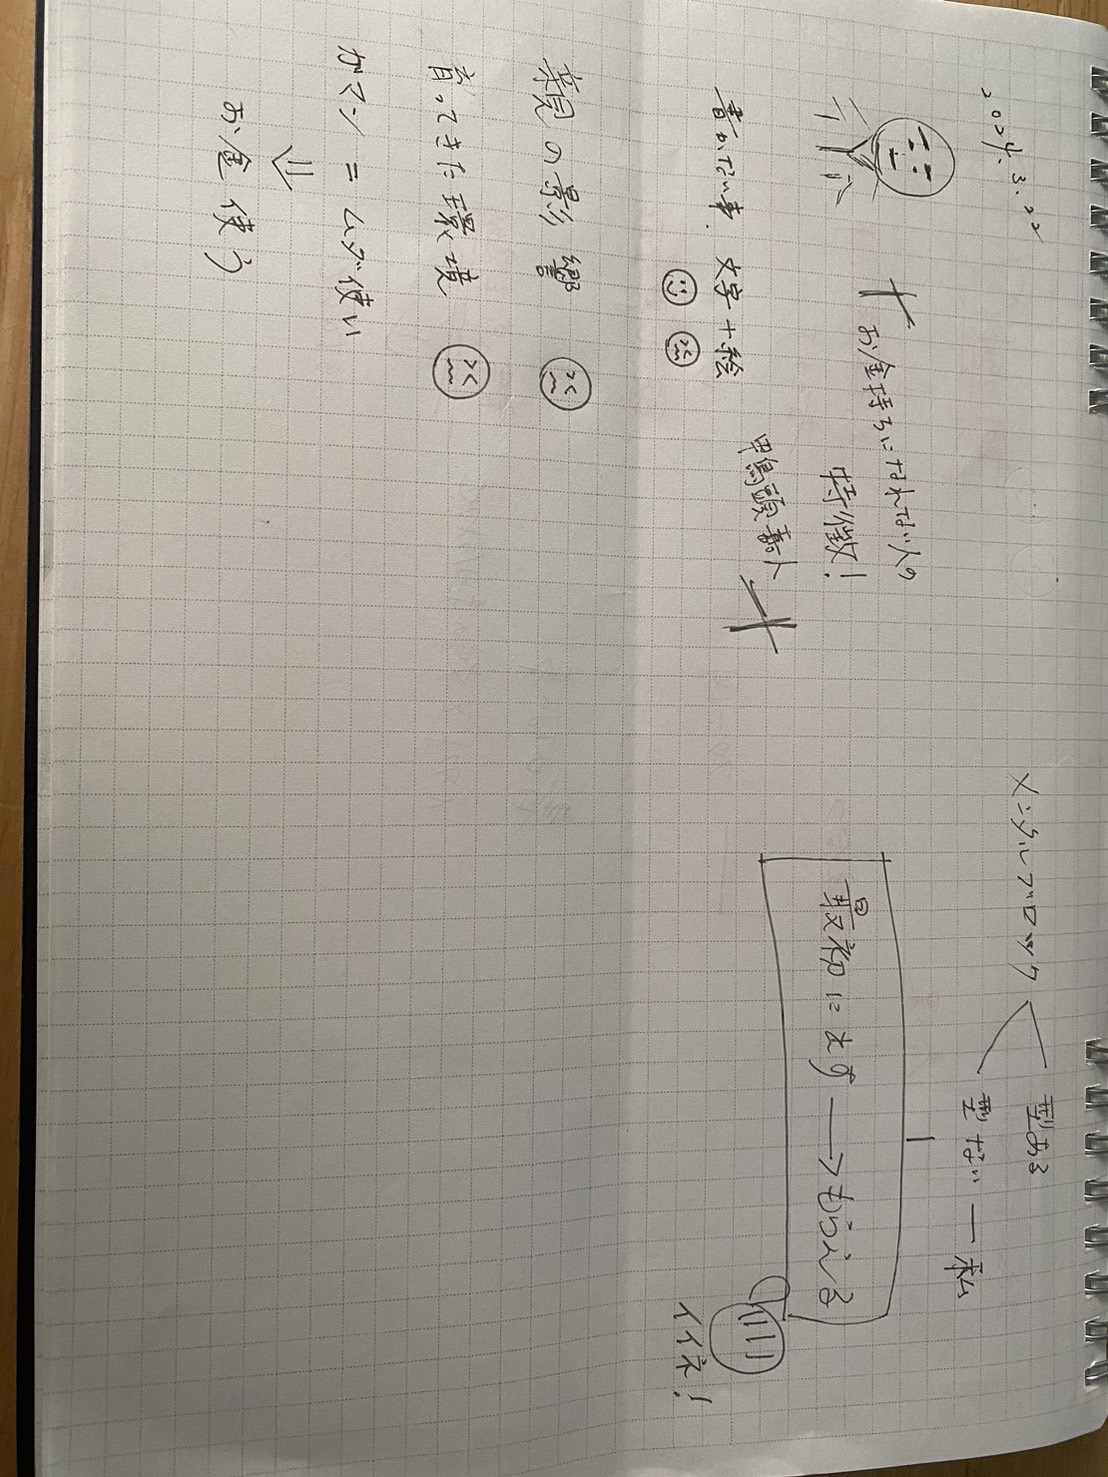 2024.3.22
お金持ちになれない人の
特徴!
書かない事 文字+絵
鴨頭嘉人
親の影響
育ってきた環境
ガマン=ムダ使い
お金使う
メンタルブロック
型ある
型ない 一 私
最初に出す→もらえる
イイネ!